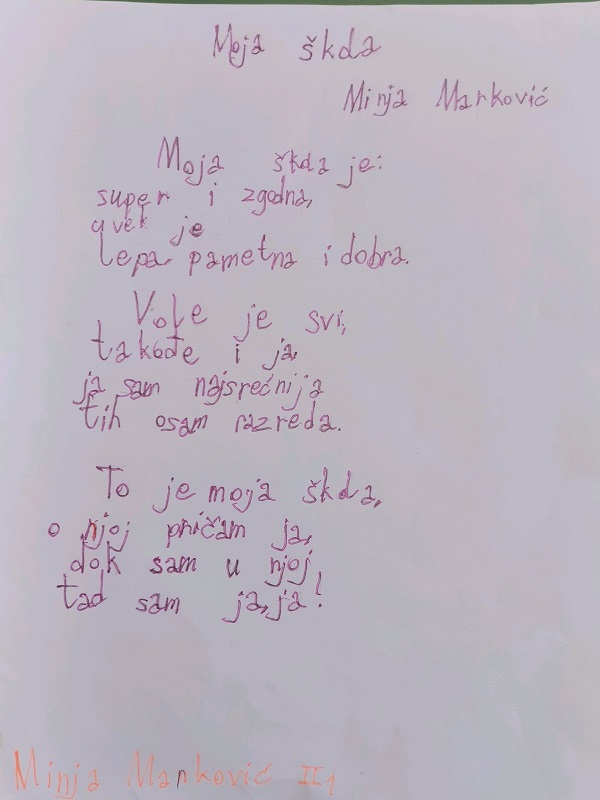 Moja škola
Minja Marković
Moja škola je:
super i zgodna,
uvek je
lepa pametna i dobra.
Vole je svi,
takođe i ja,
ja sam najsrećnija
tih osam razreda.
To je moja škola,
o njoj pričam ja,
dok sam u njoj
tad sam ja, ja!
Minja Marković II1